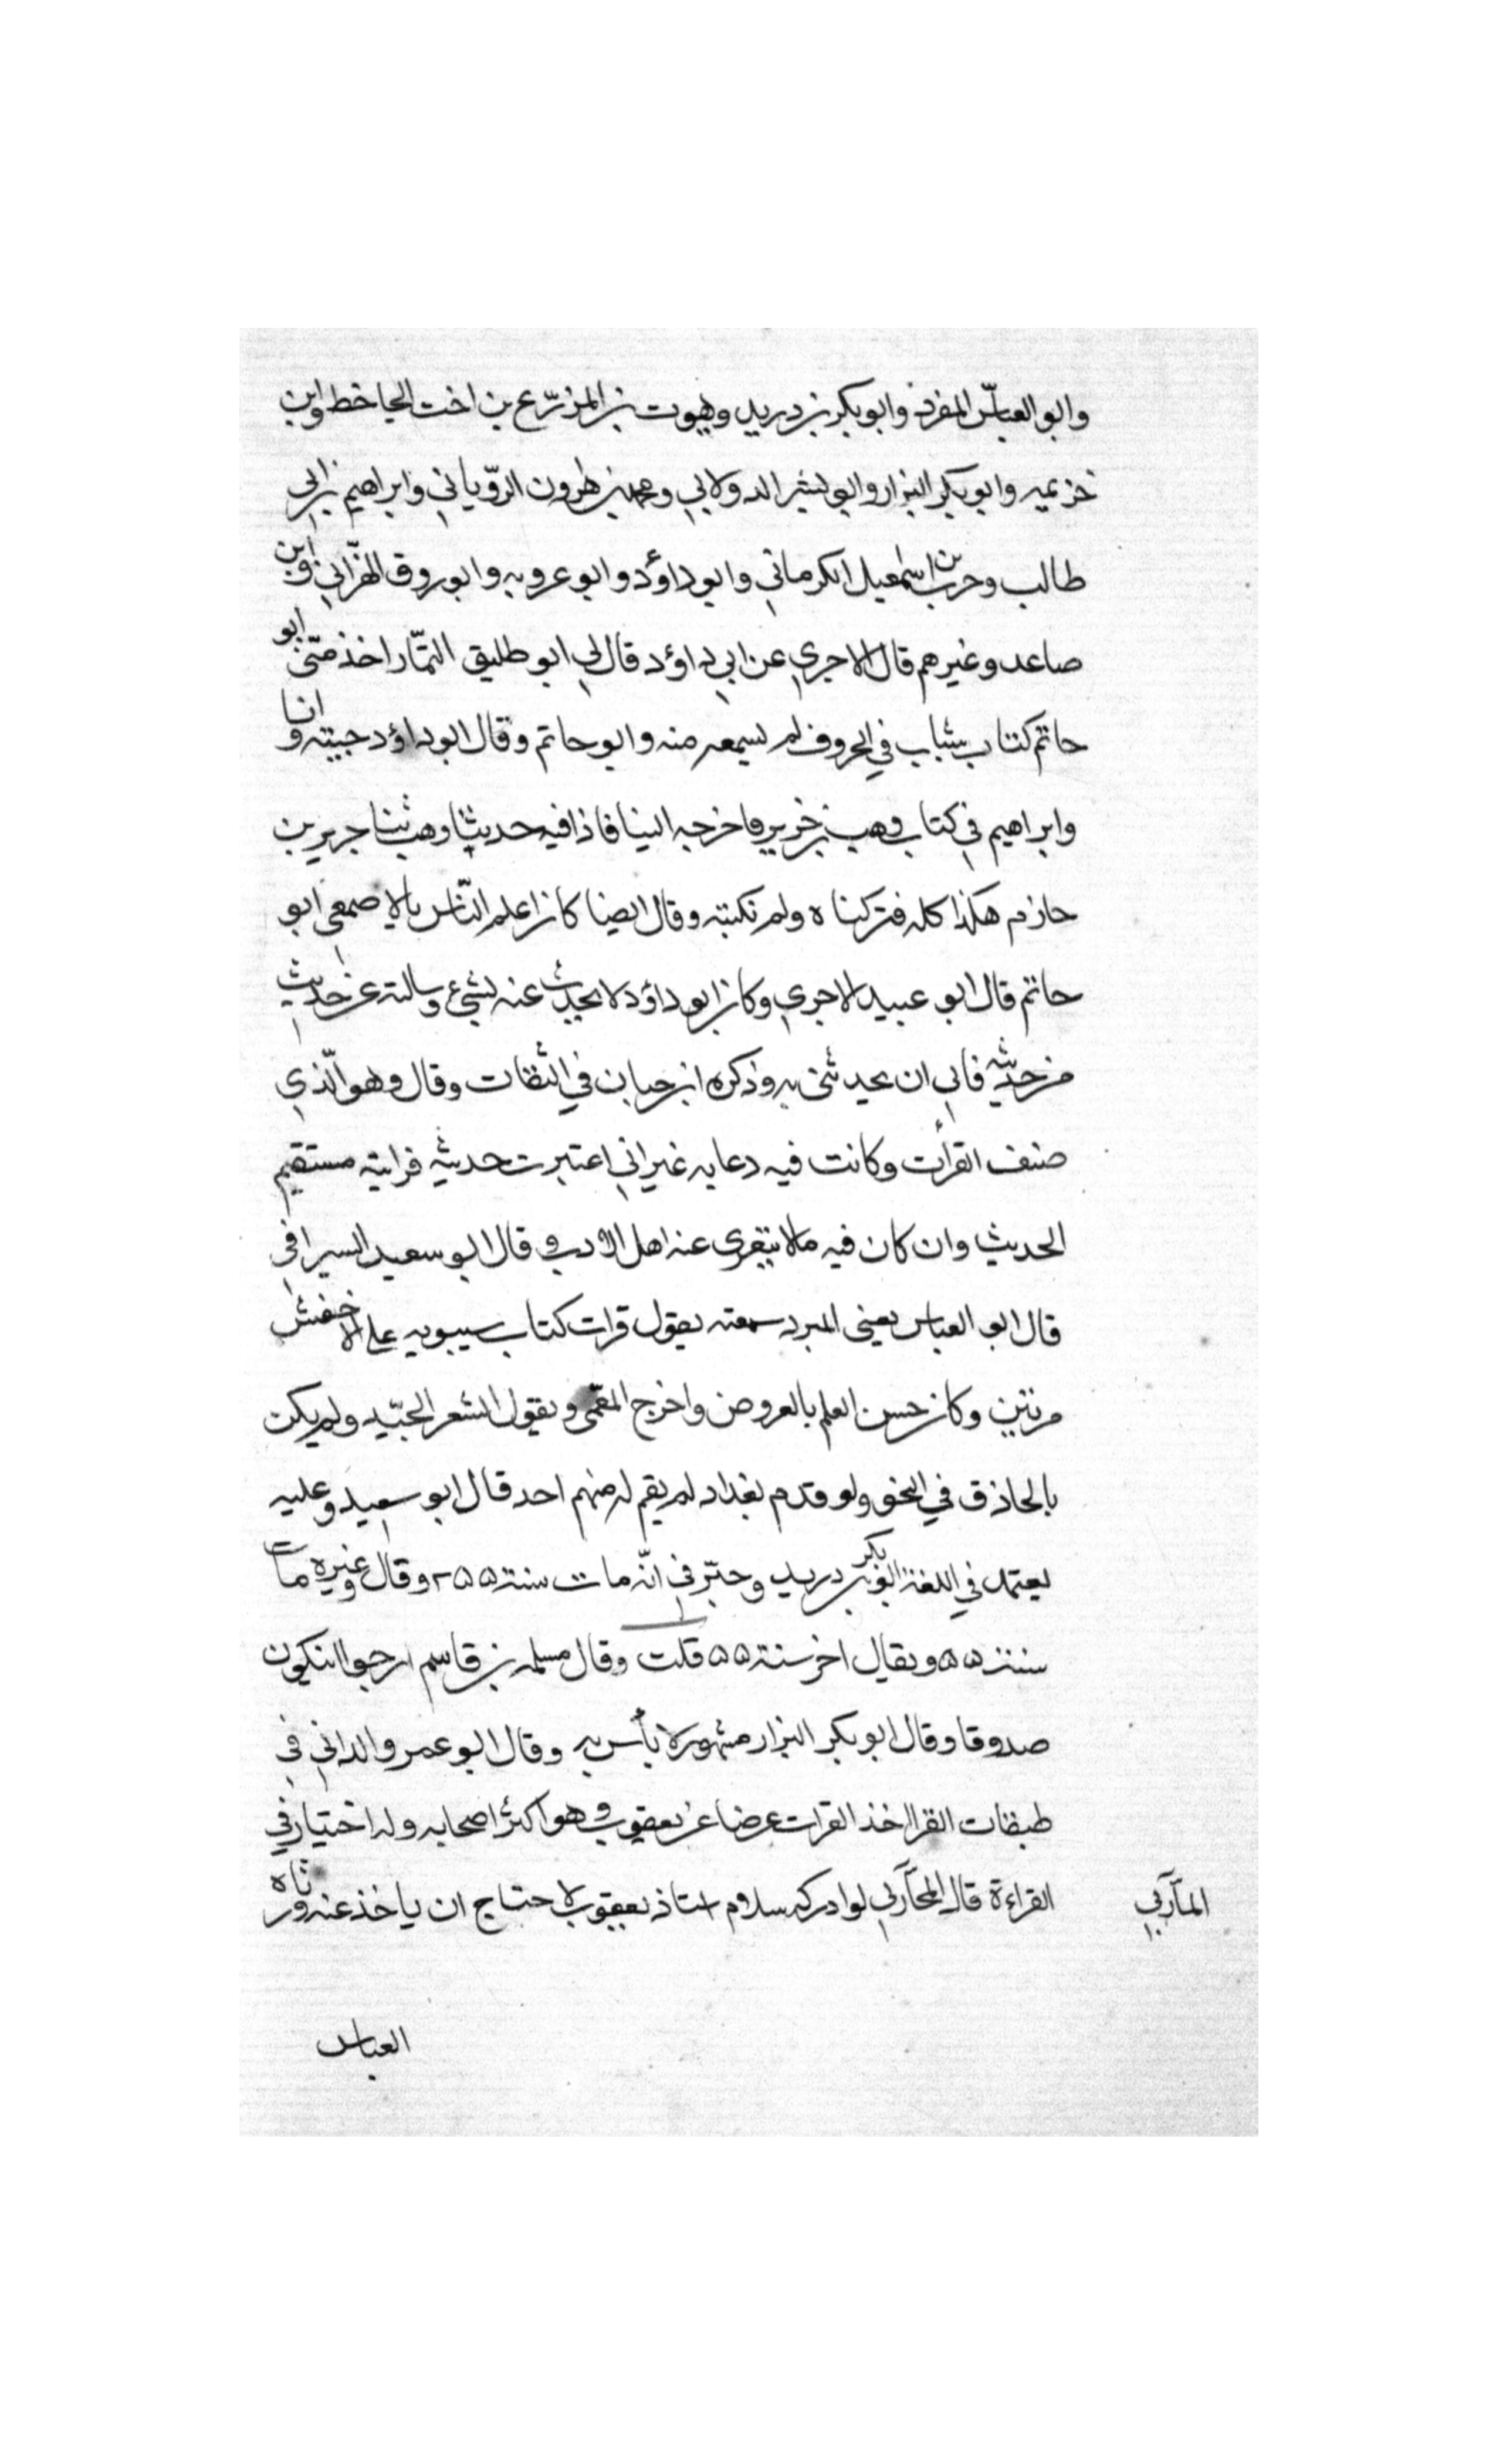 وابو العباس المفرد وابو بكر بن دريد ويموت بن المزرّع بن اخت الجاحظ وابن
خزيمه وابو بكر البزار وابو بشر الدولابي ومحمد بن هرون الروياني وابراهيم بن ابي
طالب وحرب بن اسمعيل الكرماني وابو داؤد وابو عروبه وابو روق الهزّاني وابن
صاعد وغيرهم قال الاجري عن ابي داؤد قال لي ابو طليق التمّار اخذ منّي ابو
حاتم كتاب شباب في الحروف لم يسمعه منه وابو حاتم وقال ابو داؤد جيته وانا
وابراهيم في كتاب وهب بن جرير فاخرجه الينا فاذا فيه حديثا وهب ثنا جرير بن
حازم هكذا كله فتركناه ولم نكتبه وقال ايضا كان اعلم النّاس بالاصمعي ابو
حاتم قال ابو عبيد الاجري وكان ابو داؤد لا يحدث عنه بشيء وسالته عن حديث
من حديثه فابي ان يحدثني به وذكره ابن حبان في الثقات وقال وهو الّذي
صنف القرأت وكانت فيه دعابه غير اني اعتبرت حديثه فرايته مستقيم
الحديث وان كان فيه مالا يتعرى عنه اهل الادب وقال ابو سعيد السيرافي
قال ابو العباس يعني المبرد سمعته يقول قرات كتاب سيبويه علي الاخفش
مرتين وكان حسن العلم بالعروض واخرج المعّمى ويقول الشعر الجيّد ولم يكن
بالحاذق في النحو ولو قدم بغداد لم يقم له منهم احد قال ابو سعيد وعليه
يعتمد في اللغة ابو بكر بن دريد وخبّرني انّه مات سنة ٢٥٥ وقال وغيره مات
سنة ٥٥ ويقال اخر سنة ٥٥ قلت وقال مسلمه بن قاسم ارجوا ان يكون
صدوقا وقال ابو بكر البزار مشهور لا بأس به وقال ابو عمرو الداني في
طبقات القرا اخذ القرات عرضا عن يعقوب وهو اكثر اصحابه وله اختيار في
القراءة قال المحآربي لو ادركه سلام استاذ يعقوب لاحتاج ان ياخذ عنه ورثاه
المآربي
العباس